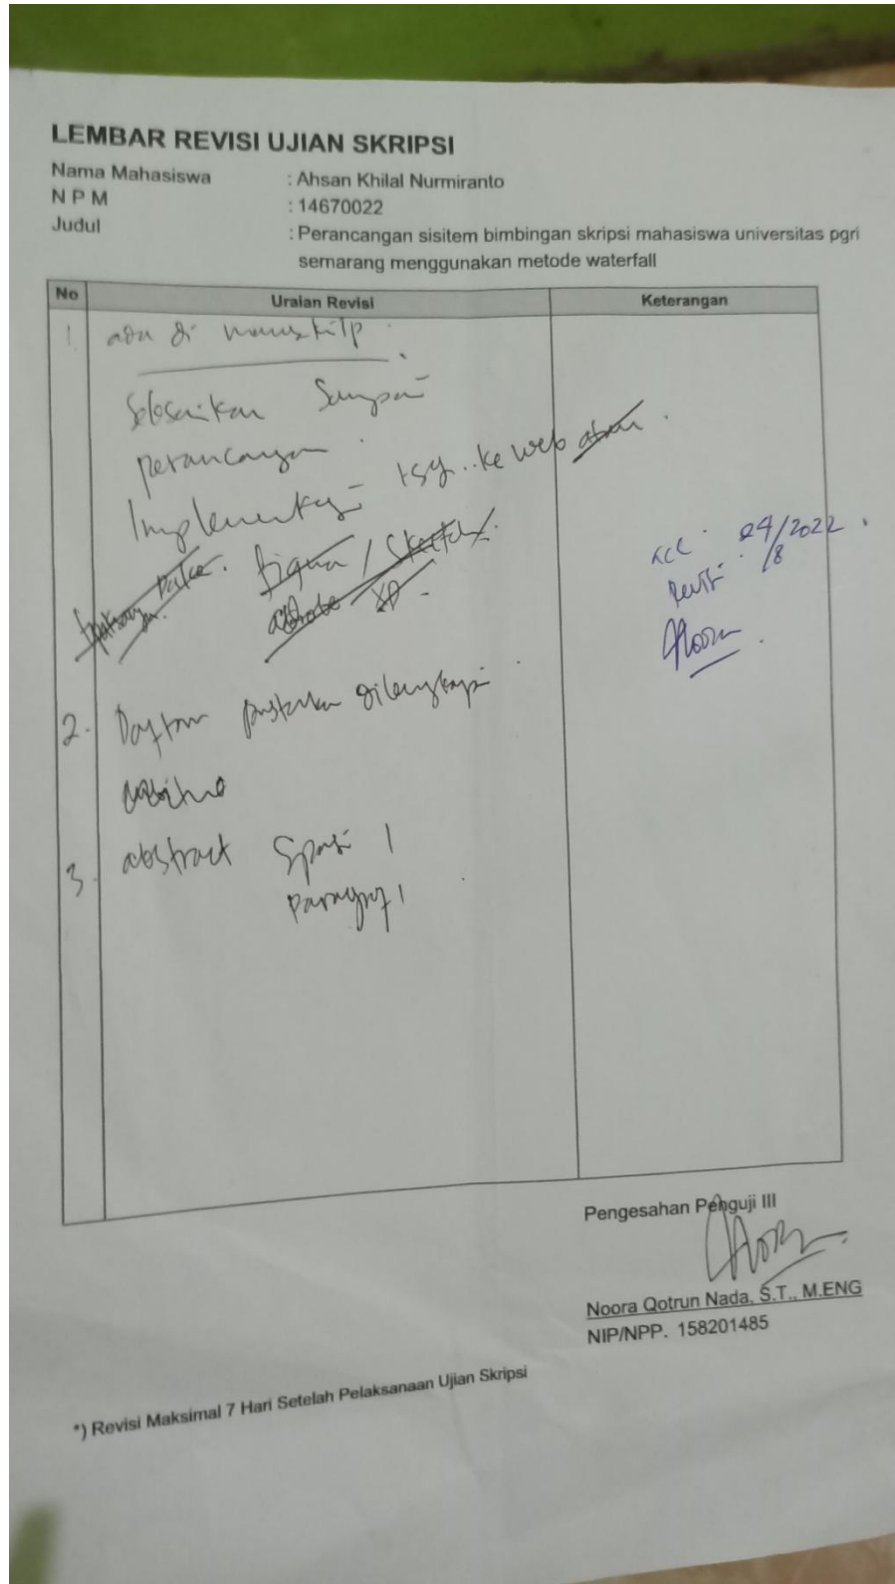 LEMBAR REVISI UJIAN SKRIPSI
Nama Mahasiswa : Ahsan Khilal Nurmiranto
N P M : 14670022
Judul : Perancangan sisitem bimbingan skripsi mahasiswa universitas pgri
semarang menggunakan metode waterfall
No Uraian Revisi Keterangan
1 ada di manuskrip.
Selesaikan Sampai
perancangan.
Implementasi ke web
Figma / Sketch
XD
acc 24/8/2022.
Revisi
Noora
2. Daftar pustaka dilengkapi
3. abstract Spasi 1
paragraf 1
Pengesahan Penguji III
Noora
Noora Qotrun Nada, S.T., M.ENG
NIP/NPP. 158201485
*) Revisi Maksimal 7 Hari Setelah Pelaksanaan Ujian Skripsi